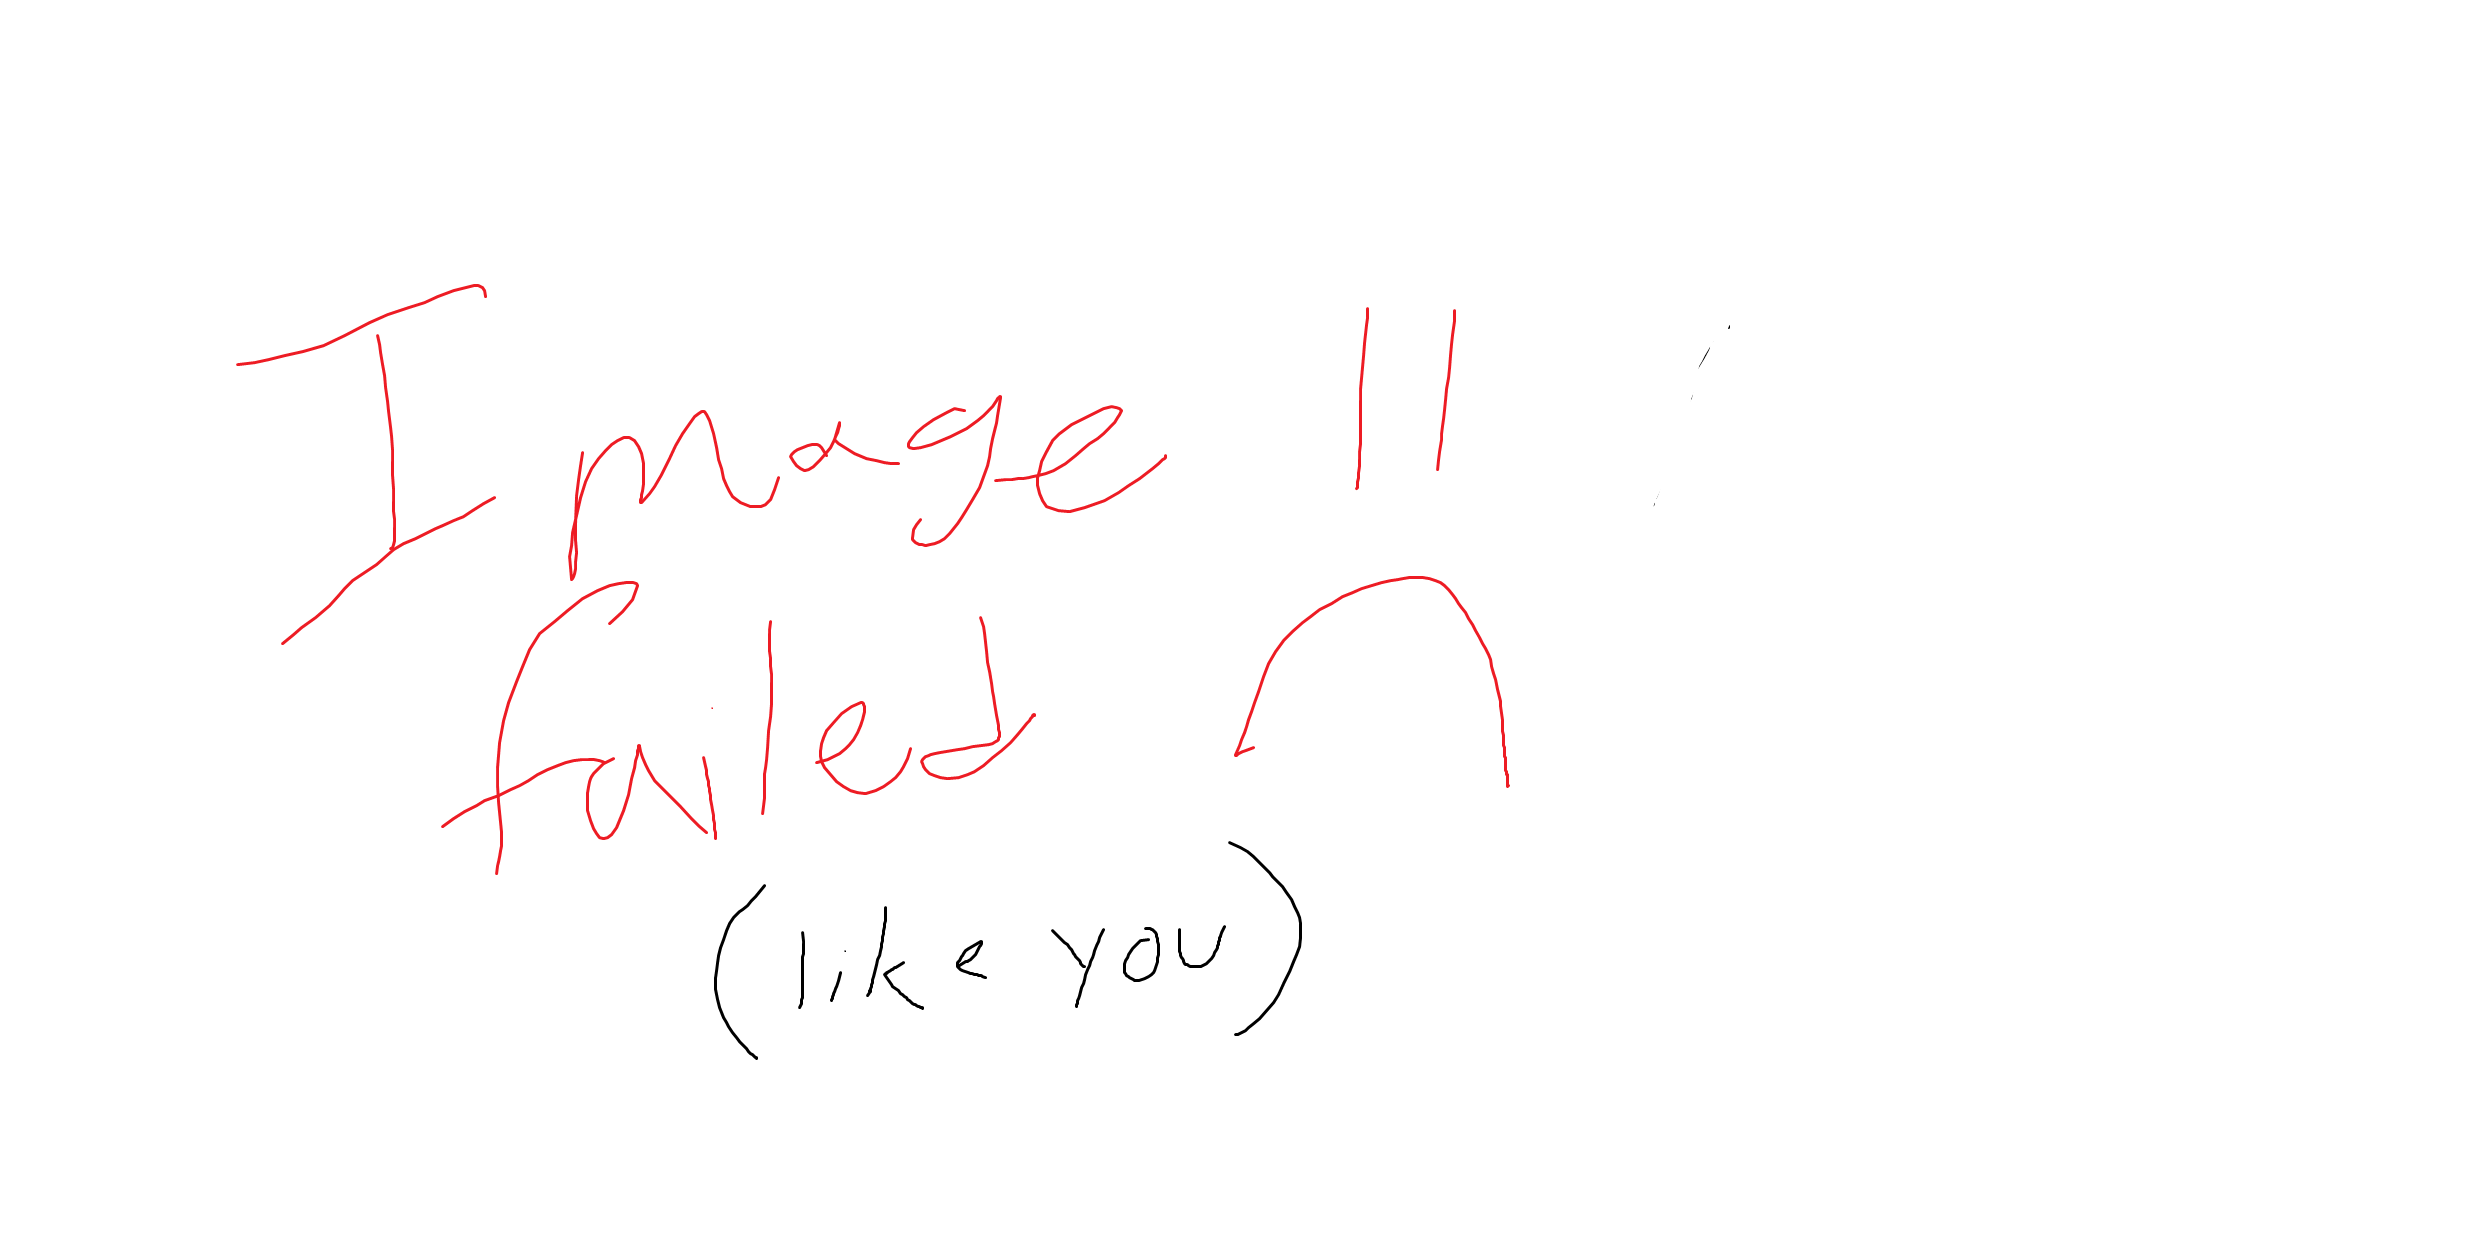 Image
failed
(like you)